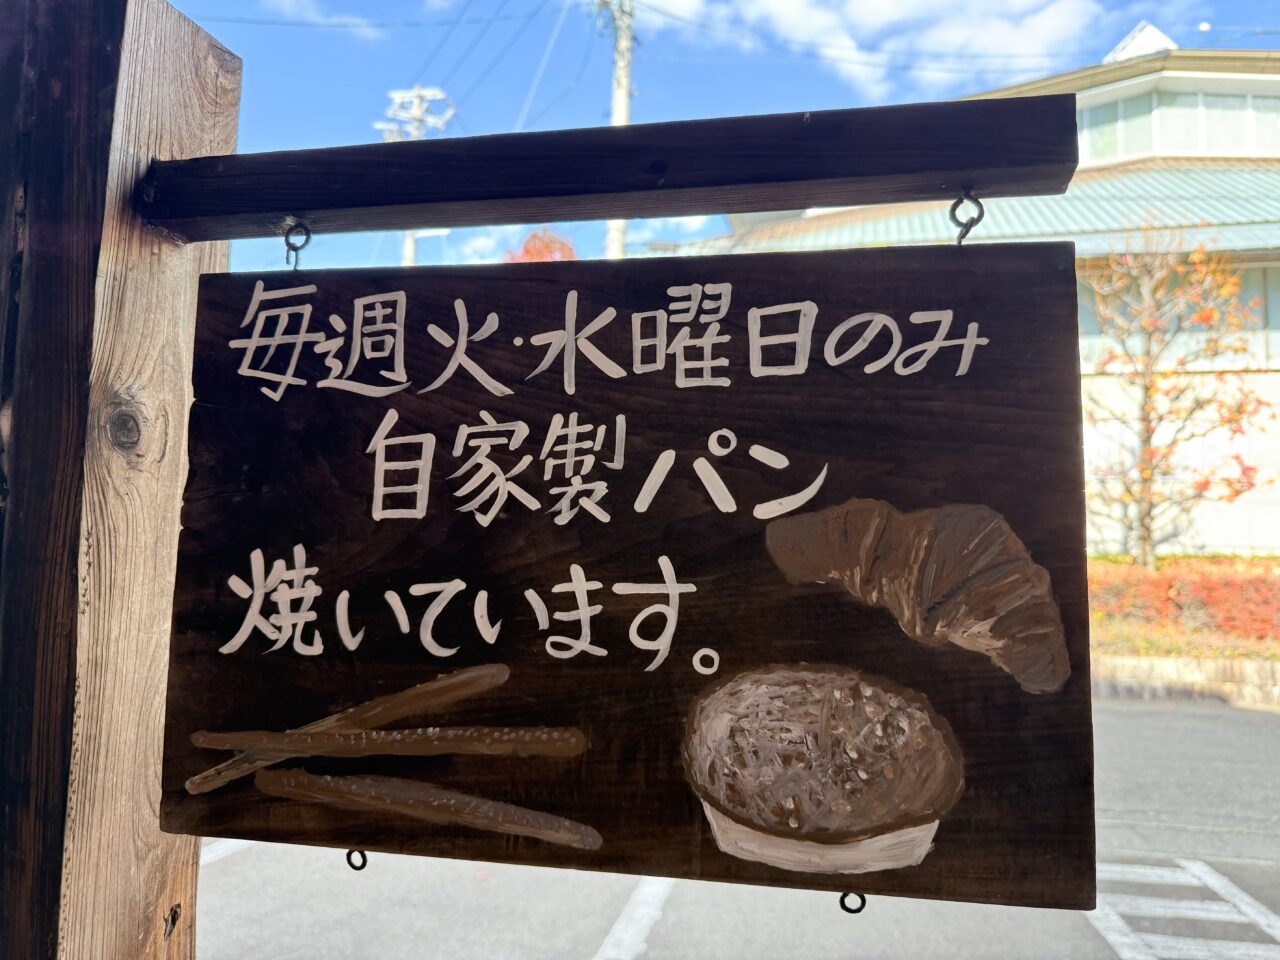 毎週火・水曜日のみ
自家製パン
焼いています。